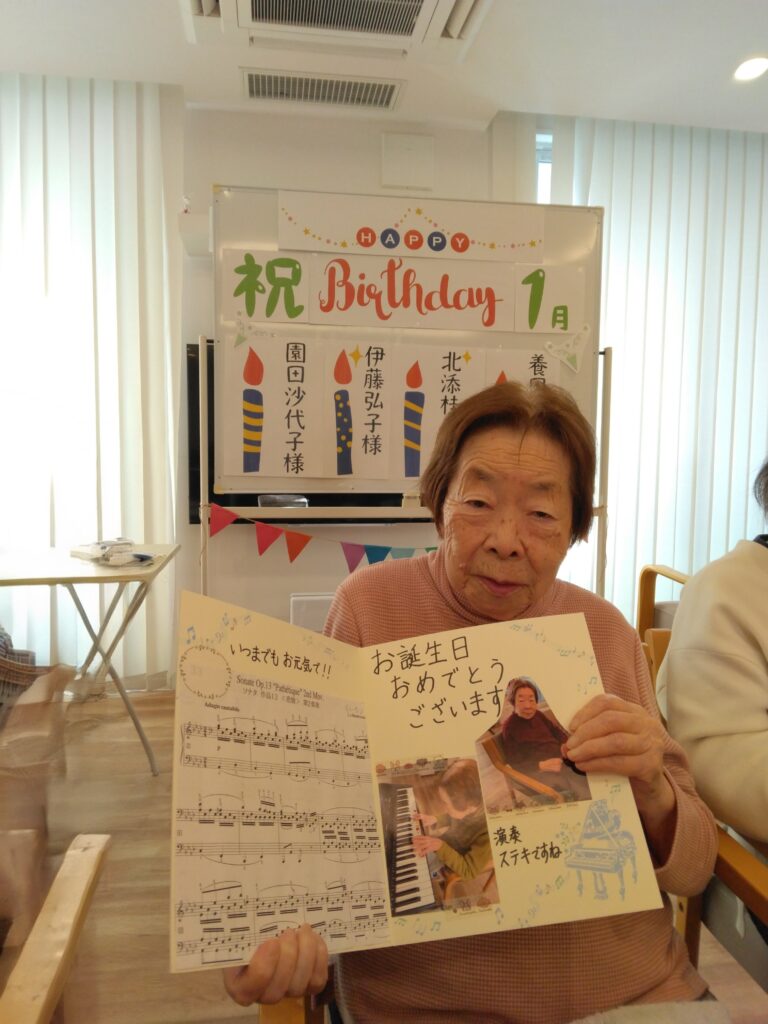 HAPPY
祝 Birthday 1月
園田沙代子様
伊藤弘子様
北添桂
養
いつまでも お元気で!!
Sonate Op.13 "Pathétique" 2nd Mov.
ソナタ 作品13 《悲愴》 第2楽章
Adagio cantabile
お誕生日
おめでとう
ございます
演奏
ステキですね